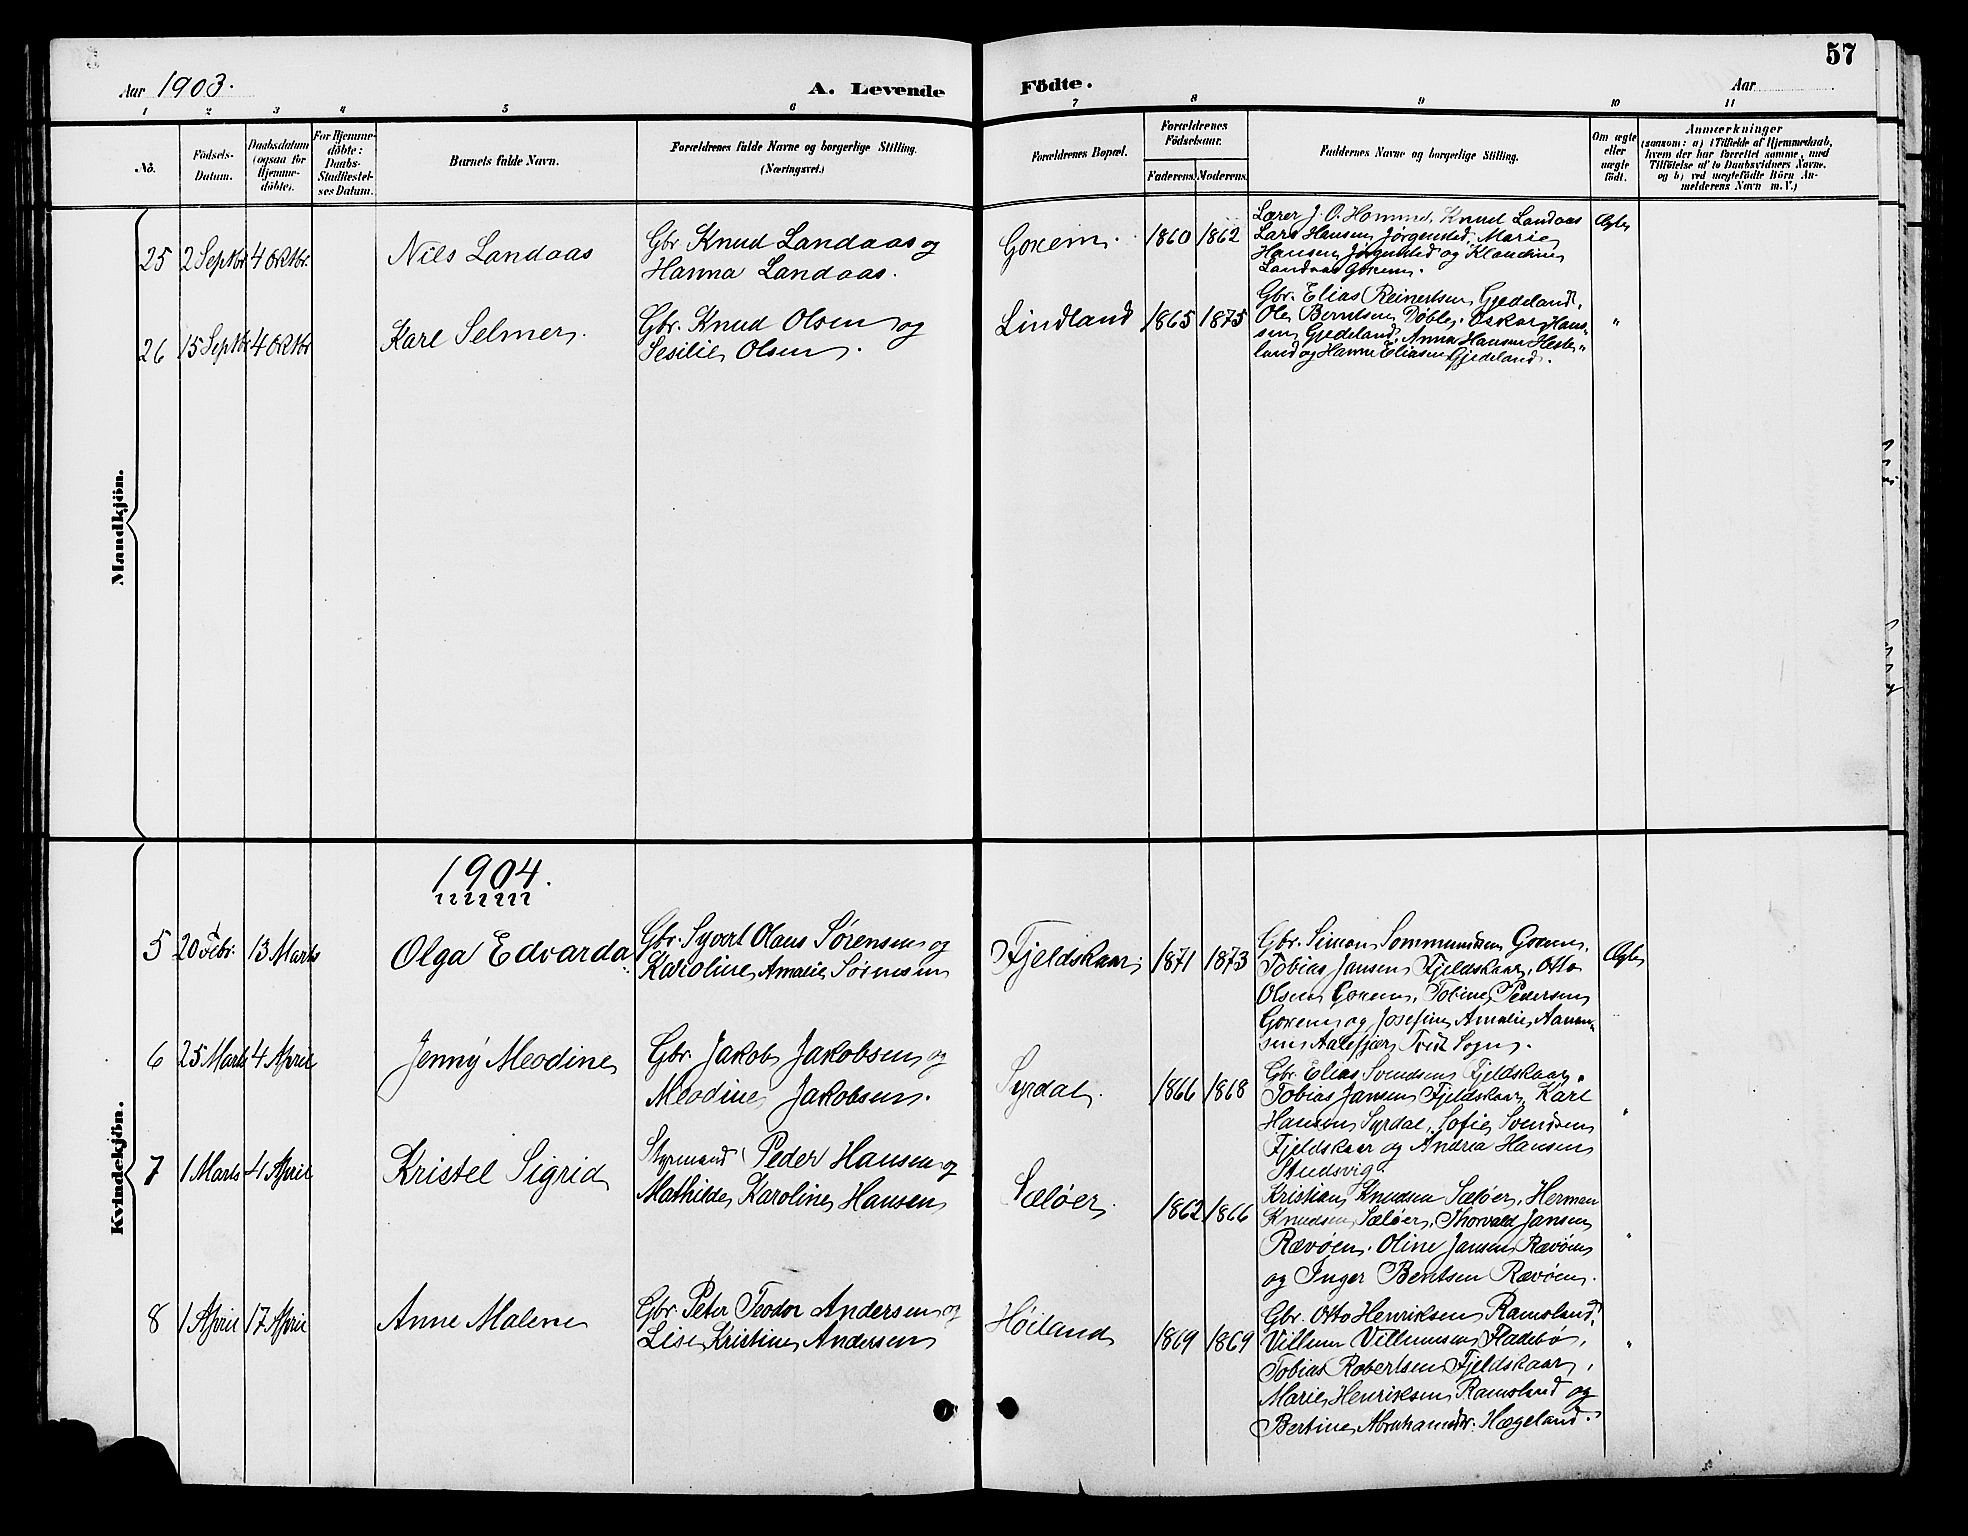 57
Aar 1903.
A. Levende Födte.
Aar
1 2 3 4 5 6 7 8 9 10 11
No.
Födsels-
Datum.
Daabsdatum
(ogsaa for
Hjemme-
döbte).
For Hjemme-
döbte:
Daabs-
Stadfæstel-
ses Datum.
Barnets fulde Navn.
Forældrenes fulde Navne og borgerlige Stilling.
(Næringsvei.)
Forældrenes Bopæl.
Forældrenes
Födselsaar.
Faderens. Moderens.
Faddernes Navne og borgerlige Stilling.
Om ægte
eller
uægte
født.
Anmærkninger
(saasom: a) i Tilfælde af Hjemmedaab,
hvem der har forrettet samme, med
Tilföielse af to Daabsvidners Navne.
og b) ved uægtefödte Börn An-
melderens Navn m. V.)
Mandkjön.
25 2 Septbr 4 Oktbr. Nils Landaas
Gbr Knud Landaas og
Hanna Landaas.
Goxem. 1860 1862
Lærer J. O. Hommes, Knud Landaas
Lars Hansen Jørgensted, Marie
Hansen Jørgensted og Klaudine
Landaas Goxem.
Ægte
26 15 Septbr 4 Oktbr Karl Selmer.
Gbr. Knud Olsen og
Sesilie Olsen.
Lindland 1865 1875
Gbr. Elias Reinertsen Gjedeland,
Ole Berntsen Døble, Oskar Han-
sen Gjedeland, Anna Hansen Heste-
land og Hanne Eliasen Gjedeland.
"
Kvindekjön.
1904.
5 20 Febr. 13 Marts Olga Edvarda
Gbr. Syvert Olaus Sørensen og
Karoline Amalie Sørensen
Fjeldskaar. 1871 1873
Gbr. Simon Sommundsen Goxem,
Tobias Jansen Fjeldskaar, Otto
Olsen Goxem, Tobine Pedersen
Goxem og Josefine Amalie Aanen-
sen Aalefjær Tveit Sogn.
Ægte
6 25 Marts 4 April Jenny Meodine
Gbr. Jakob Jakobsen og
Meodine Jakobsen.
Syrdal. 1866 1868
Gbr. Elias Svendsen Fjeldskaar,
Tobias Jansen Fjeldskaar, Karl
Hansen Syrdal, Sofie Svendsen
Fjeldskaar og Andrea Hansen
Studsvig.
"
7 1 Marts 4 April Kristel Sigrid
Styrmand Peder Hansen og
Mathilde Karoline Hansen
Sæløer. 1862 1866
Kristian Knudsen Sæløer, Herman
Knudsen Sæløer, Thorvald Jansen
Rævøen, Oline Jansen Rævøen
og Inger Bentsen Rævøen.
"
8 1 April 17 April Anne Malene
Gbr. Peter Teodor Andersen og
Lise Kristine Andersen
Høiland 1869 1869
Gbr. Otto Henriksen Ramsland,
Villum Villumsen Fladebø,
Tobias Robertsen Fjeldskaar,
Marie Henriksen Ramsland og
Bertine Abrahamsdtr. Hægeland.
"